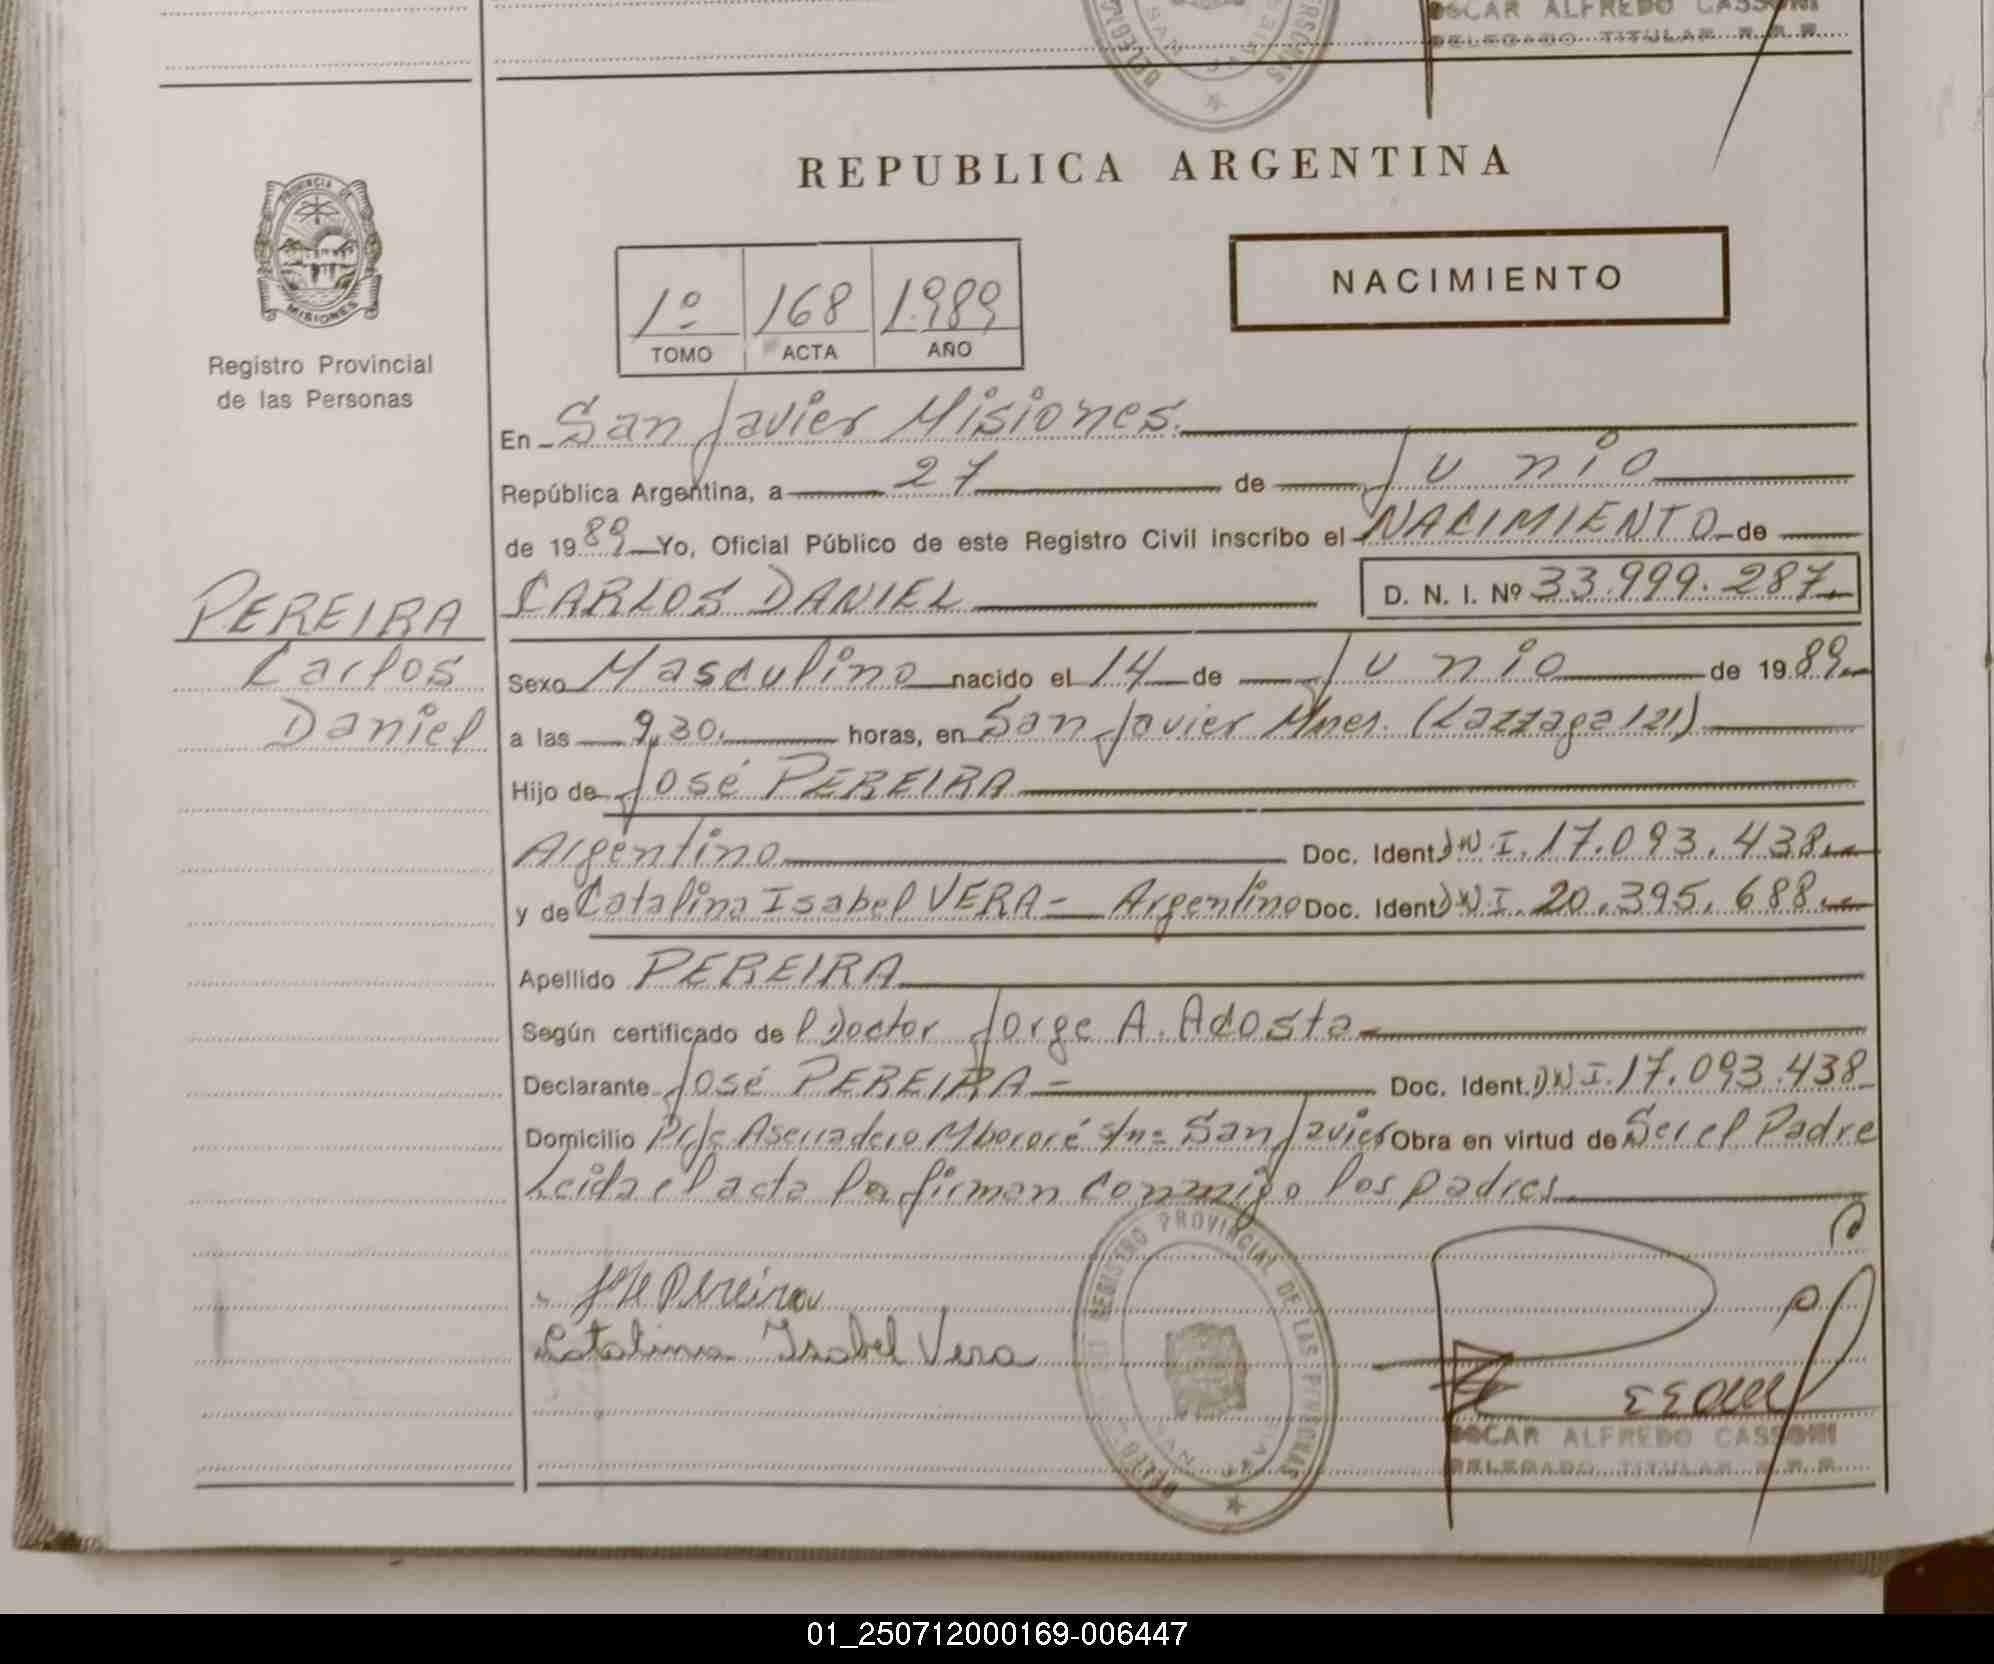 OSCAR ALFREDO CASSONI
DELEGADO TITULAR R.P.P.
PROVINCIA DE
MISIONES
Registro Provincial
de las Personas
REPUBLICA ARGENTINA
NACIMIENTO
1º 168 1.989
TOMO ACTA AÑO
En San Javier Misiones.
República Argentina, a 27 de Junio
de 1989 Yo, Oficial Público de este Registro Civil inscribo el NACIMIENTO de
CARLOS DANIEL D. N. I. Nº 33.999.287
PEREIRA
Carlos
Daniel
Sexo Masculino nacido el 14 de Junio de 1989
a las 9,30. horas, en San Javier Mnes. (Lazzaga 121)
Hijo de José PEREIRA
Argentino Doc. Ident. DNI. 17.093.438
y de Catalina Isabel VERA- Argentino Doc. Ident. DNI. 20.395.688
Apellido PEREIRA
Según certificado del Doctor Jorge A. Acosta
Declarante José PEREIRA- Doc. Ident. DNI. 17.093.438
Domicilio Pje Aserradero Mbororé s/nº San Javier Obra en virtud de Ser el Padre
Leida el acta la firman conmigo los padres.
José Pereira
Catalina Isabel Vera
REGISTRO PROVINCIAL DE LAS PERSONAS
SAN JAVIER
OSCAR ALFREDO CASSONI
DELEGADO TITULAR R.P.P.
01_250712000169-006447